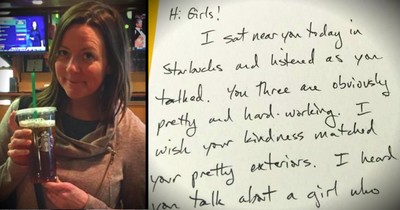 Hi Girls!
I sat near you today in
Starbucks and listened as you
talked. You three are obviously
pretty and hard-working. I
wish your kindness matched
your pretty exteriors. I heard
you talk about a girl who